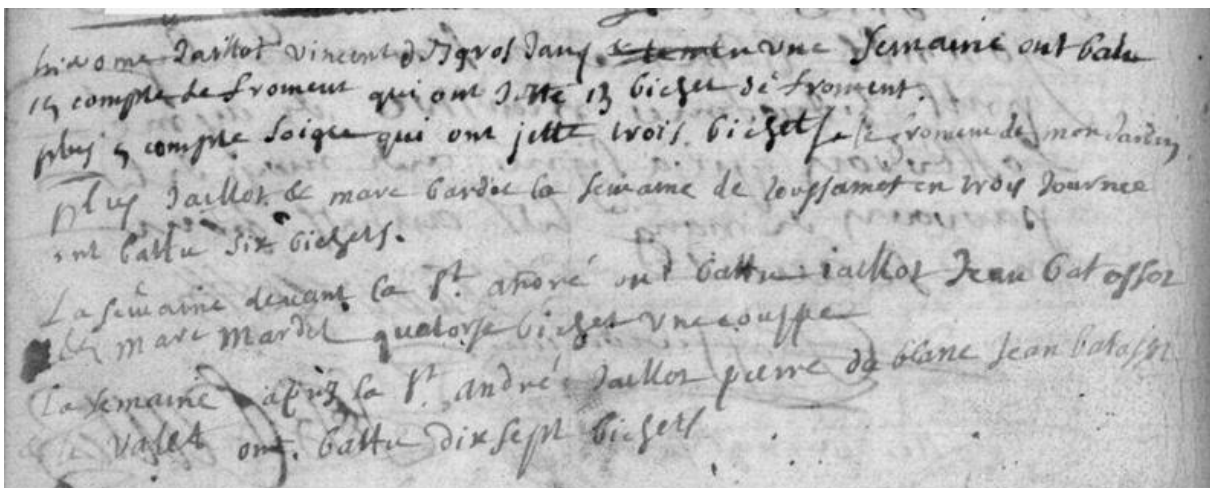 Jaillot vincent dans une semaine ont batu
13 compte de froment qui ont jette 13 bichet de froment.
plus 5 compte soigle qui ont jette trois bichet de froment de mon Jardin
plus Jaillot & marc bardet la semaine de toussamet en trois Journee
ont battu six bichets.
La semaine devant la St. andré ont battu iaillot Jean
marc Mardel quatorse bichet une couppe
La semaine aprez la St. andré Jaillot pierre de blanc Jean
valet ont battu dix sept bichets